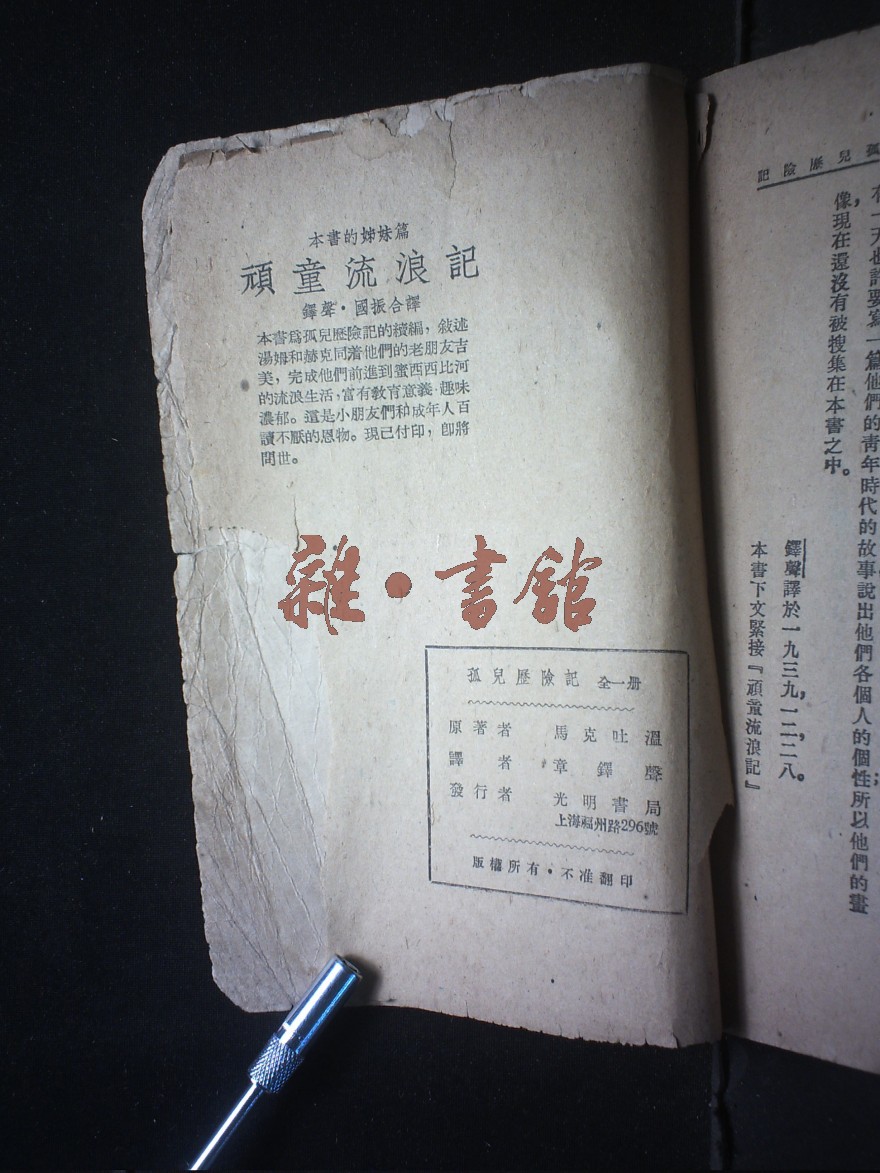 本書的姊妹篇
頑童流浪記
鐸聲·國振合譯
本書爲孤兒歷險記的續編，敍述
湯姆和赫克同着他們的老朋友吉
美，完成他們前進到蜜西西比河
的流浪生活，富有教育意義·趣味
濃郁。這是小朋友們和成年人百
讀不厭的恩物。現已付印，卽將
問世。
雜·書館
孤兒歷險記 全一册
原著者 馬克吐溫
譯者 章鐸聲
發行者 光明書局
上海福州路296號
版權所有·不准翻印
孤兒歷險記
有一天也許要寫一篇他們的靑年時代的故事說出他們各個人的個性所以他們的畫
像，現在還沒有被搜集在本書之中。
鐸聲譯於一九三九，一二，二八。
本書下文緊接『頑童流浪記』